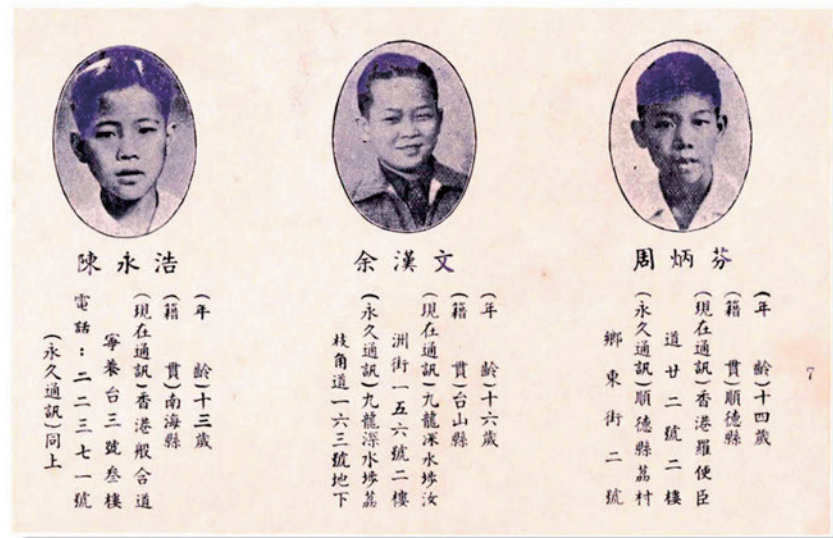 7
周炳芬
(年 齡)十四歲
(籍 貫)順德縣
(現在通訊)香港羅便臣
道廿二號二樓
(永久通訊)順德縣荔村
鄉東街二號
余漢文
(年 齡)十六歲
(籍 貫)台山縣
(現在通訊)九龍深水埗汝
洲街一五六號二樓
(永久通訊)九龍深水埗荔
枝角道一六三號地下
陳永浩
(年 齡)十三歲
(籍 貫)南海縣
(現在通訊)香港般合道
寧養台三號叁樓
電話:二二三七一號
(永久通訊)同上